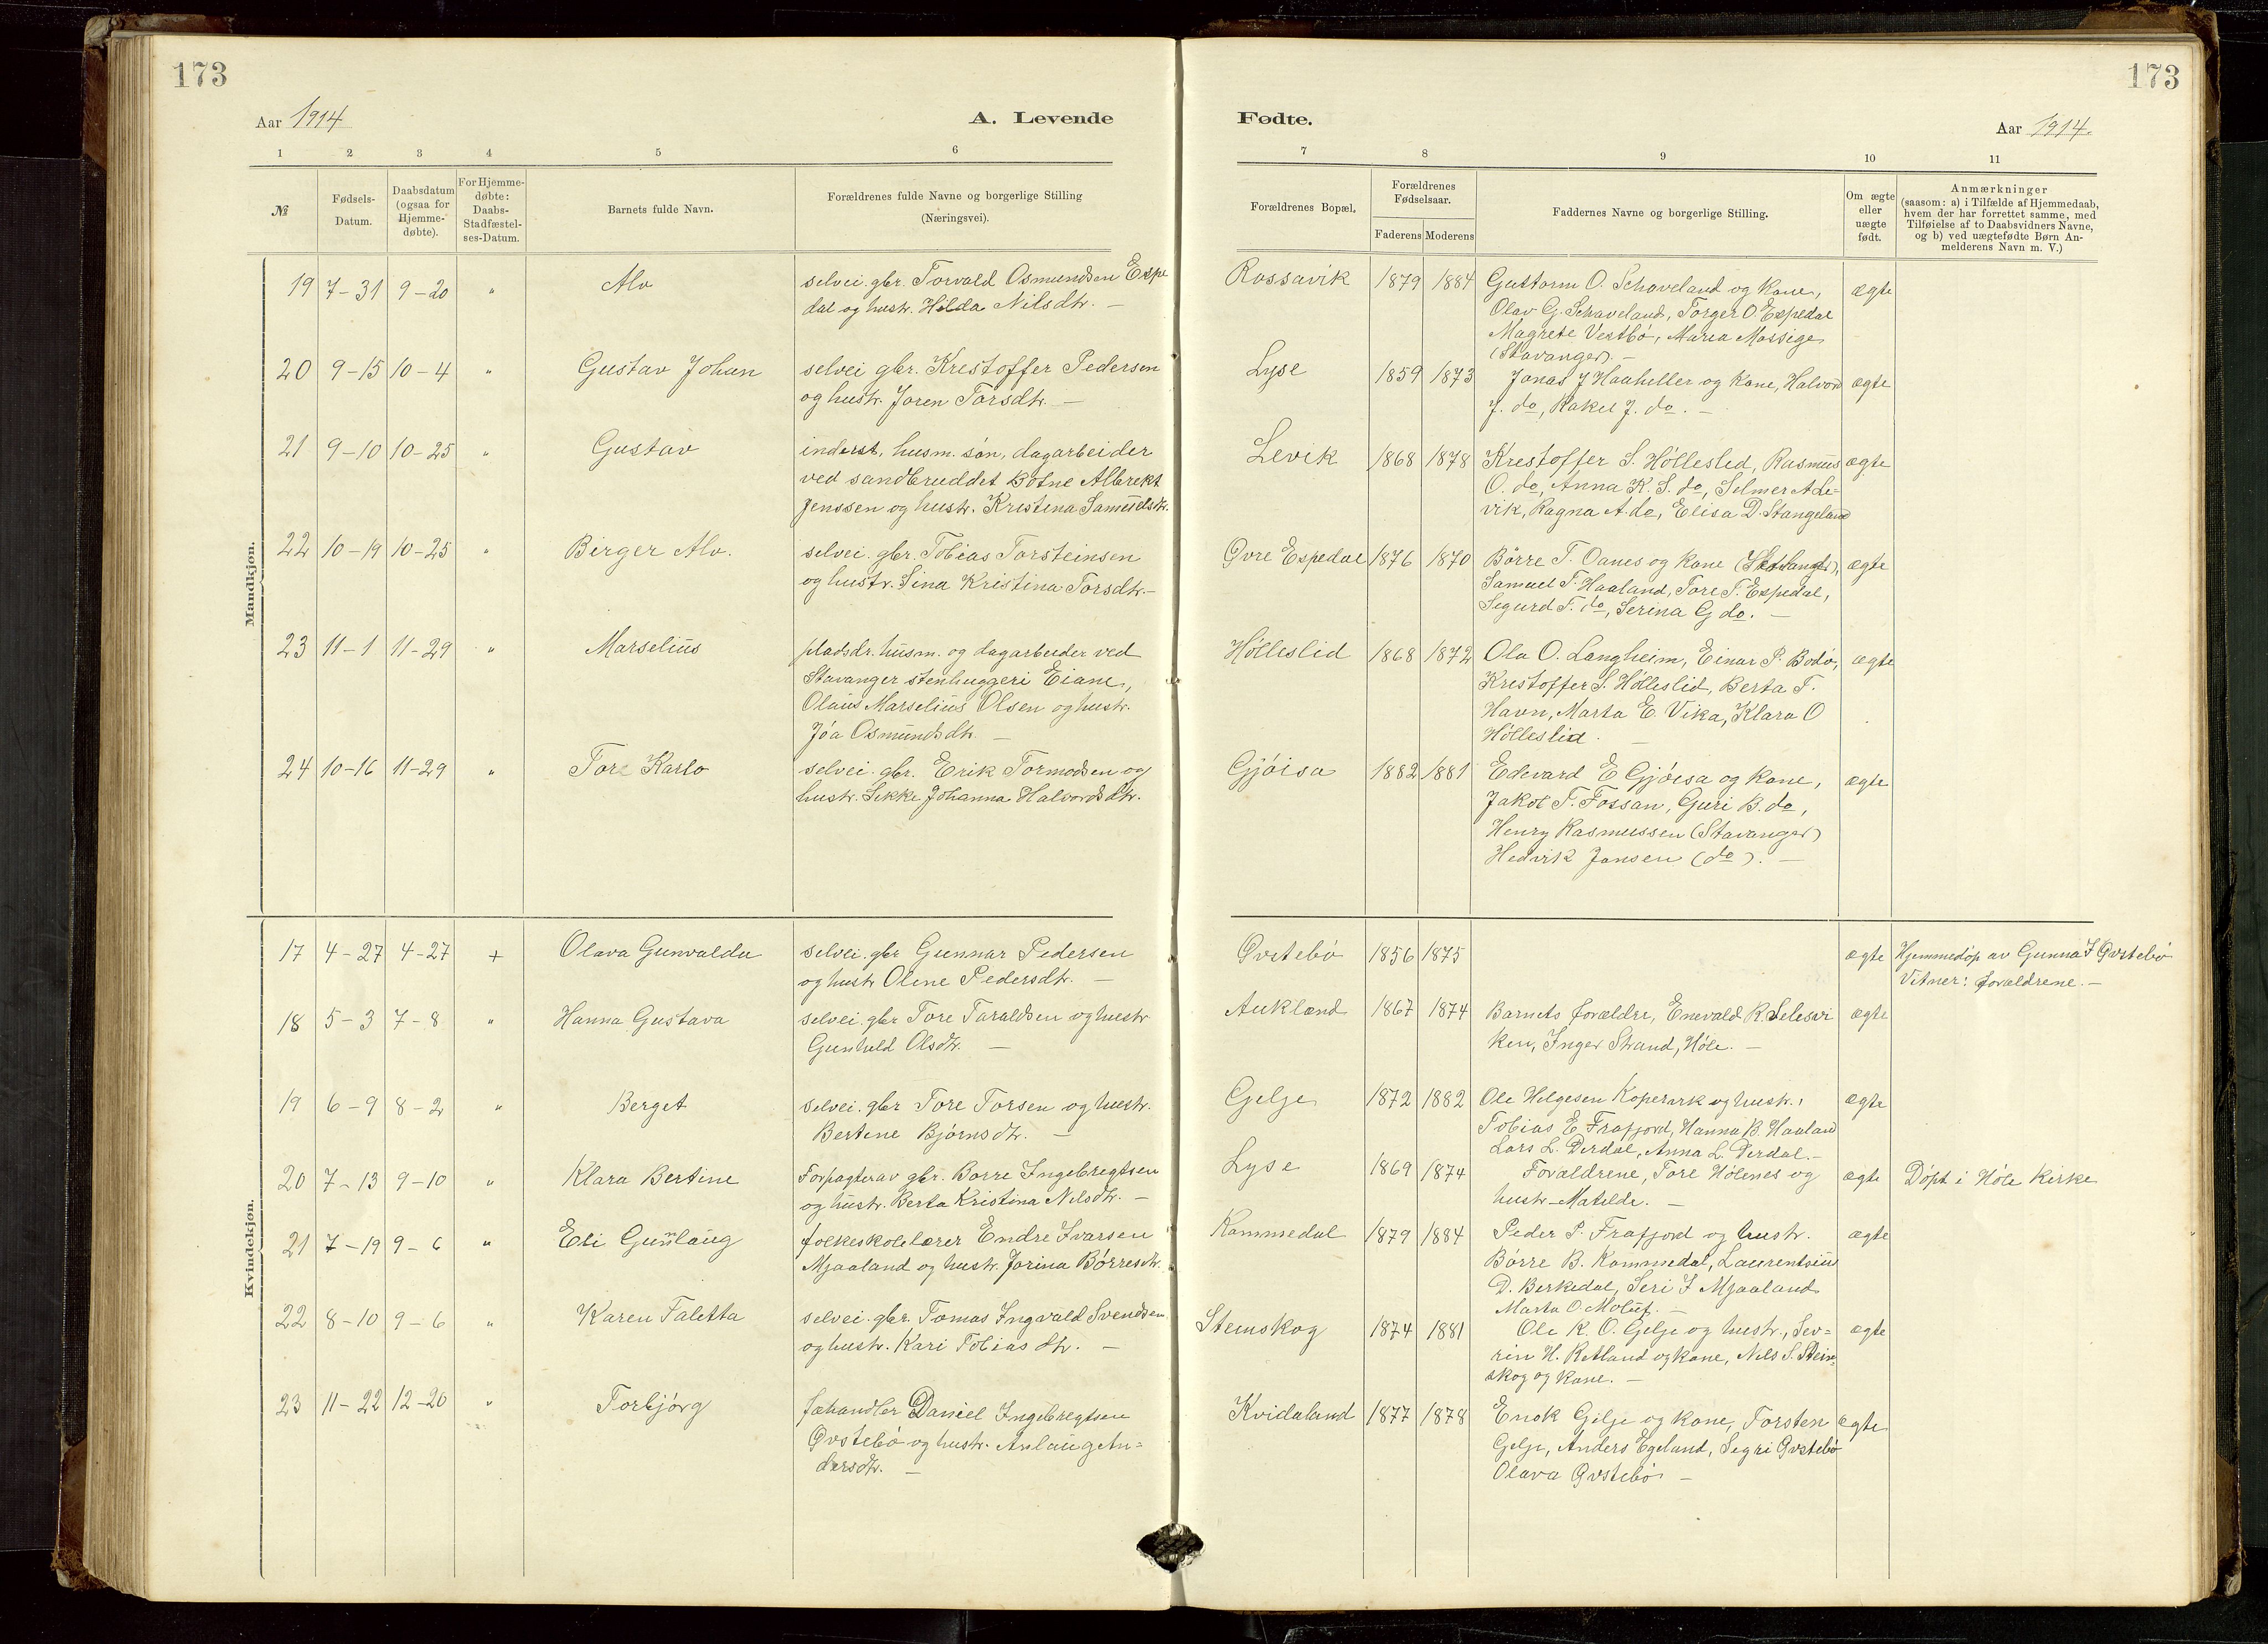 173
Aar 1914
A. Levende
1 2 3 4 5 6
№
Fødsels-
Datum.
Daabsdatum
(ogsaa for
Hjemme-
døbte).
For Hjemme-
døbte:
Daabs-
Stadfæstel-
ses-Datum.
Barnets fulde Navn.
Forældrenes fulde Navne og borgerlige Stilling
(Næringsvei).
Mandkjøn.
19 7-31 9-20 " Alv selvei. gbr. Torvald Osmundsen Espe
dal og hustr. Hilda Nilsdtr. —
20 9-15 10-4 " Gustav Johan selvei gbr. Krestoffer Pedersen
og hustr. Joren Torsdtr. —
21 9-10 10-25 " Gustav inderst, husm. søn, dagarbeider
ved sandbruddet Botne Albrekt
Jenssen og hustr. Kristina Samuelsdtr.
22 10-19 10-25 " Birger Alv. selvei. gbr. Tobias Torsteinsen
og hustr. Sina Kristina Torsdtr. —
23 11-1 11-29 " Marselius pladsdr. husm. og dagarbeider ved
Stavanger stenhuggeri Eiane,
Olaus Marselius Olsen og hustr.
Jóa Osmundsdtr. —
24 10-16 11-29 " Tore Karlo selvei. gbr. Erik Tormodsen og
hustr. Sikke Johanna Halvordsdtr.
Kvindekjøn.
17 4-27 4-27 + Olava Gunvalda selvei. gbr Gunnar Pedersen
og hustr Oline Pedersdtr. —
18 5-3 7-8 " Hanna Gustava selvei. gbr Tore Taraldsen og hustr
Gunhild Olsdtr. —
19 6-9 8-2 " Berget selvei. gbr Tore Torsen og hustr.
Bertine Bjørnsdtr. —
20 7-13 9-10 " Klara Bertine Forpagter av gbr. Borre Ingebregtsen
og hustr. Berta Kristina Nilsdtr. —
21 7-19 9-6 " Eli Gunlaug folkeskolelærer Endre Ivarsen
Mjaaland og hustr. Jorina Børresdtr.
22 8-10 9-6 " Karen Taletta selvei. gbr. Tomas Ingvald Svendsen
og hustr. Kari Tobiasdtr. —
23 11-22 12-20 " Torbjørg fæhandler Daniel Ingebregtsen
Øvstebø og hustr. Anlaug An=
dersdtr. —
173
Fødte.
Aar 1914.
7 8 9 10 11
Forældrenes Bopæl.
Forældrenes
Fødselsaar.
Faderens Moderens
Faddernes Navne og borgerlige Stilling.
Om ægte
eller
uægte
født.
Anmærkninger
(saasom: a) i Tilfælde af Hjemmedaab,
hvem der har forrettet samme, med
Tilføielse af to Daabsvidners Navne,
og b) ved uægtefødte Børn An-
melderens Navn m. V.)
Rossavik 1879 1884 Guttorm O. Schaveland og kone, ægte
Olav G. Schaveland, Torger O. Espedal
Magrete Vestbø, Maria Mossige
(Stavanger). —
Lyse 1859 1873 Jonas J Haaheller og kone, Halvor ægte
J. do, Rakel J. do. —
Levik 1868 1878 Krestoffer S. Hølleslid, Rasmus ægte
O. do, Anna K. S. do, Selmer A Le=
vik, Ragna A. do, Elisa D. Stangeland
Øvre Espedal 1876 1870 Børre T. Oanes og kone ægte
Samuel T. Haaland, Tore T. Espedal,
Segurd T. do, Serina G do. —
Hølleslid 1868 1872 Ola O. Langheim, Einar P. Bodø, ægte
Krestoffer S. Hølleslid, Berta T.
Havn, Marta E. Vika, Klara O
Hölleslid. —
Gjøisa 1882 1881 Edevard E Gjøisa og kone, ægte
Jakob T. Fossan, Guri B. do,
Henry Rasmussen (Stavanger)
Hedvik Jansen (do). —
Øvstebø 1856 1875 ægte Hjemmedøp av Gunna I Øvstebø
Vitner: forældrene. —
Aukland 1867 1874 Barnets forældre, Enevald R. Selesvi ægte
ken, Inger Strand, Høle. —
Gilje 1872 1882 Ole Helgesen Kopervik og hustr., ægte
Tobias E. Frafjord, Hanna B. Haaland
Lars L. Dirdal, Anna L. Dirdal. —
Lyse 1869 1874 Forældrene, Tore Hølenes og ægte Døpt i Høle Kirke
hustr Matilde. —
Kommedal 1879 1884 Peder P. Frafjord og hustr. ægte
Børre B. Kommedal, Laurentsius
D. Berkedal, Seri I Mjaaland
Marta O Moluf. —
Stemskog 1874 1881 Ole K. O. Gilje og hustr., Sev= ægte
rin H. Retland og kone, Nils S. Stein
skog og kone. —
Kvidaland 1877 1878 Enok Gilje og kone, Torsten ægte
Gilje, Anders Egeland, Segri Øvstebø
Olava Øvstebø. —